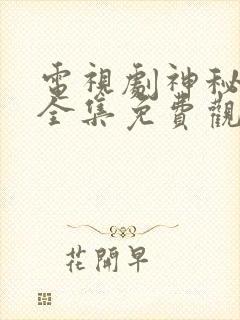 電視劇神秘
全集免費觀
花開早